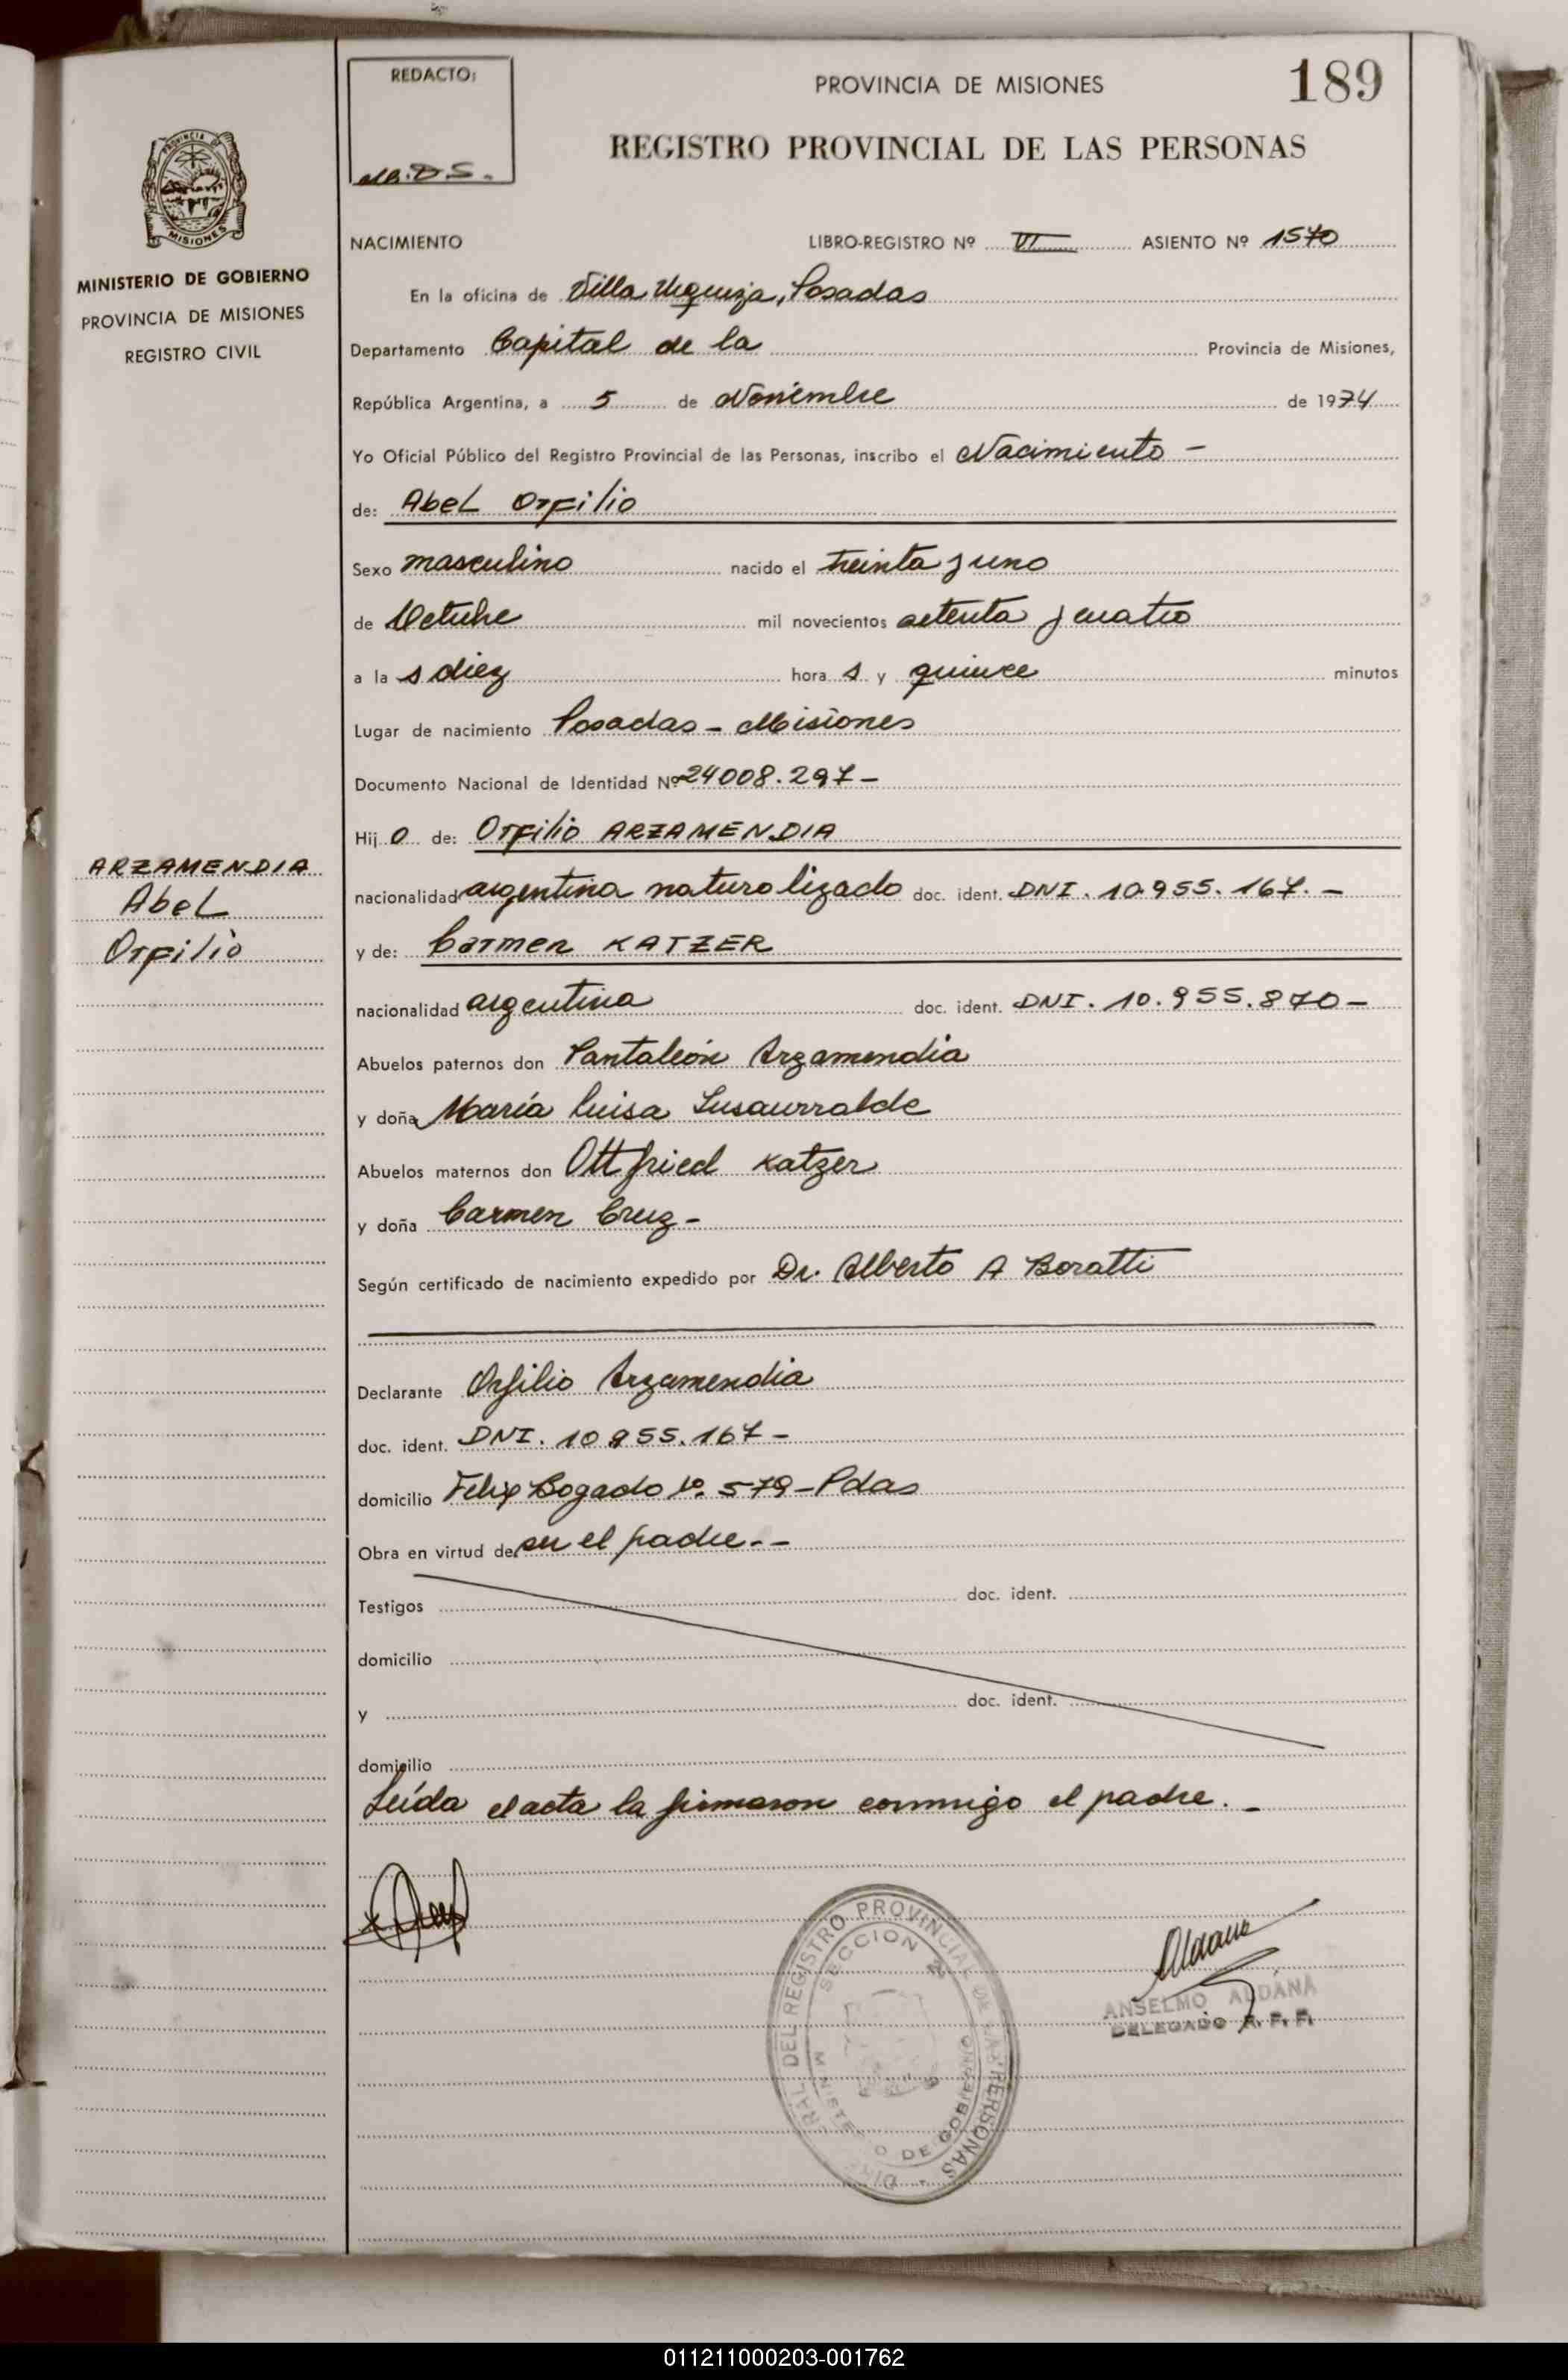 REDACTO:
M.D.S.
PROVINCIA DE MISIONES
189
REGISTRO PROVINCIAL DE LAS PERSONAS
PROVINCIA
MISIONES
MINISTERIO DE GOBIERNO
PROVINCIA DE MISIONES
REGISTRO CIVIL
NACIMIENTO LIBRO-REGISTRO Nº VI ASIENTO Nº 1570
En la oficina de Villa Urquiza, Posadas
Departamento Capital de la Provincia de Misiones,
República Argentina, a 5 de Noviembre de 1974
Yo Oficial Público del Registro Provincial de las Personas, inscribo el Nacimiento -
de: Abel Orfilio
Sexo masculino nacido el treinta y uno
de Octubre mil novecientos setenta y cuatro
a la s diez hora s y quince minutos
Lugar de nacimiento Posadas - Misiones
Documento Nacional de Identidad Nº 24008.297-
Hij o de: Orfilio ARZAMENDIA
ARZAMENDIA
Abel
Orfilio
nacionalidad argentina naturalizado doc. ident. DNI. 10.955.167.-
y de: Carmen KATZER
nacionalidad argentina doc. ident. DNI. 10.955.870-
Abuelos paternos don Pantaleón Arzamendia
y doña María Luisa Susaurralde
Abuelos maternos don Ottfried Katzer
y doña Carmen Cruz-
Según certificado de nacimiento expedido por Dr. Alberto A Boratti
Declarante Orfilio Arzamendia
doc. ident. DNI. 10.955.167-
domicilio Felix Bogado Nº 579-Pdas
Obra en virtud de ser el padre.--
Testigos doc. ident.
domicilio
y doc. ident.
domicilio
Leída el acta la firmaron conmigo el padre.-
Aldana
ANSELMO ALDANA
DELEGADO
DEL REGISTRO PROVINCIAL DE LAS PERSONAS
SECCION
MINISTERIO DE GOBIERNO
011211000203-001762